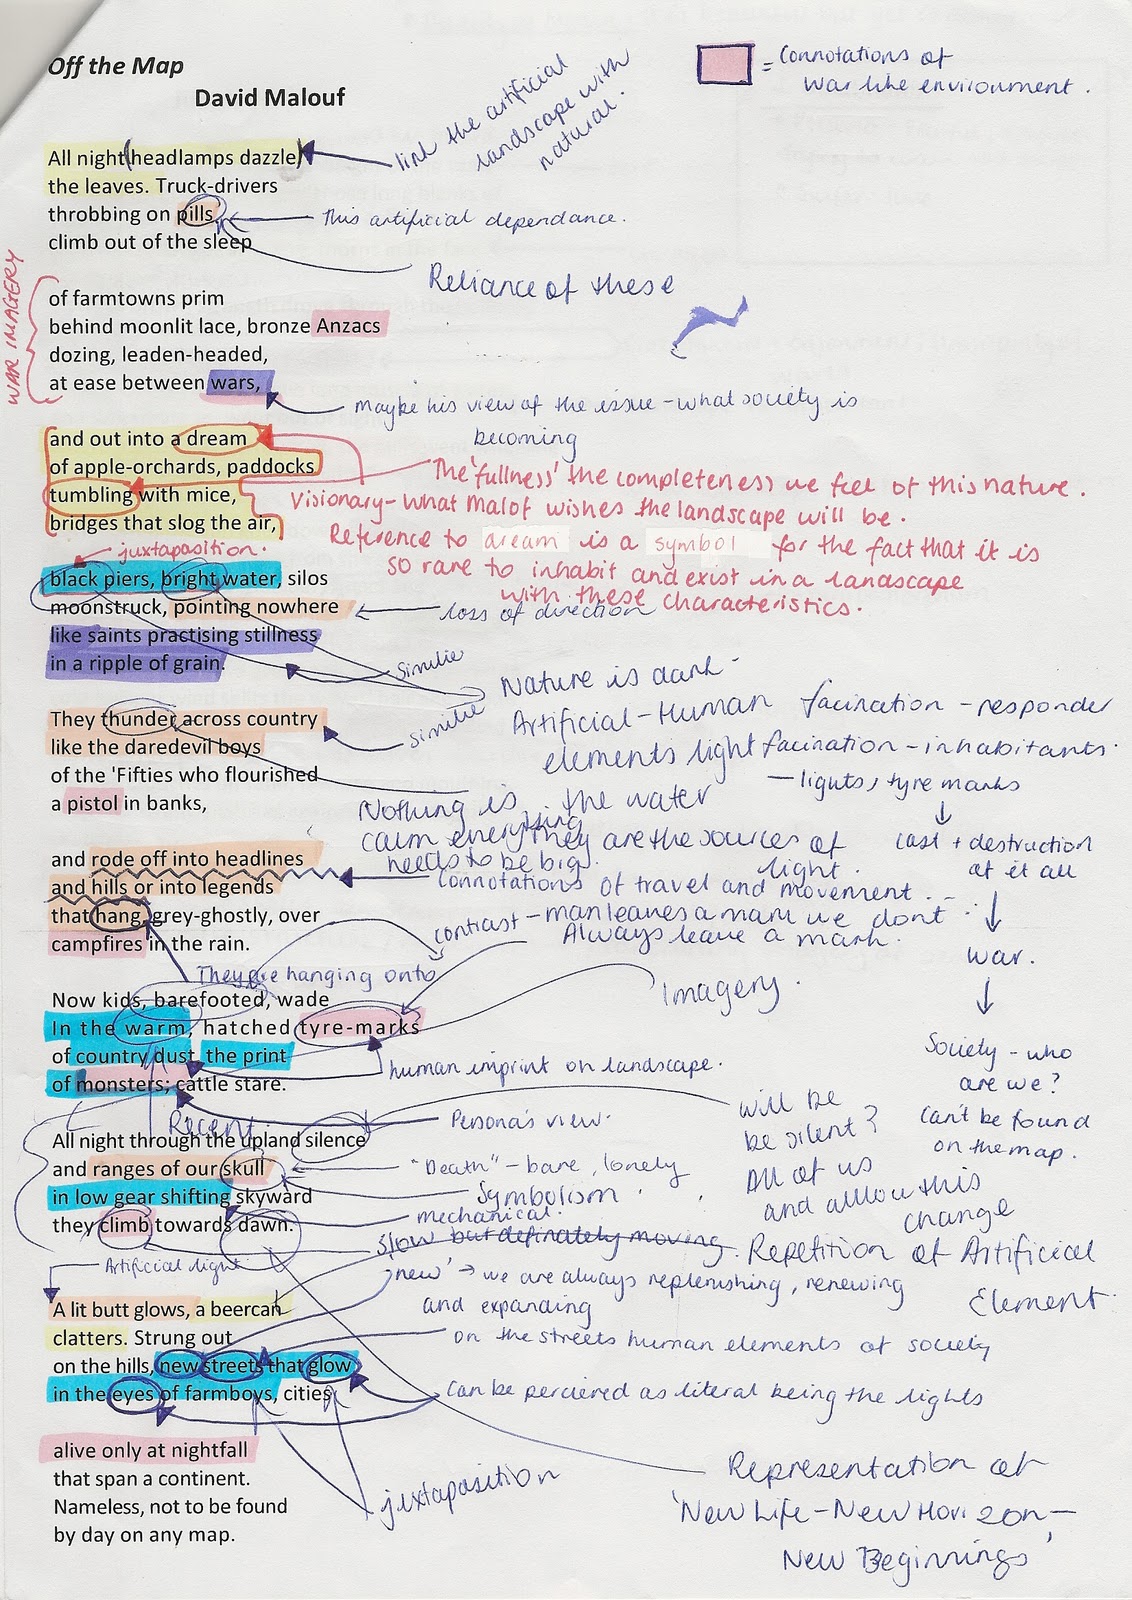 Off the Map
David Malouf
= Connotations of
War like environment.
link the artificial
landscape with
natural.
All night (headlamps dazzle)
the leaves. Truck-drivers
throbbing on pills,
This artificial dependance.
climb out of the sleep
Reliance of these
WAR IMAGERY
of farmtowns prim
behind moonlit lace, bronze Anzacs
dozing, leaden-headed,
at ease between wars,
Maybe his view of the issue - what society is
becoming
and out into a dream
of apple-orchards, paddocks
tumbling with mice,
bridges that slog the air,
The 'fullness' the completeness we feel of this nature.
Visionary - what Malof wishes the landscape will be.
Reference to dream is a symbol for the fact that it is
so rare to inhabit and exist in a landscape
with these characteristics.
juxtaposition.
black piers, bright water, silos
moonstruck, pointing nowhere
loss of direction
like saints practising stillness
in a ripple of grain.
Similie
Nature is dark -
similie
Artificial - Human facination - responder
elements light facination - inhabitants.
- lights, tyre marks
They thunder across country
like the daredevil boys
of the 'Fifties who flourished
a pistol in banks,
Nothing is
calm everything
needs to be big.
the water
they are the sources of
light.
cast + destruction
at it all
war.
Society - who
are we?
Can't be found
on the map.
and rode off into headlines
and hills or into legends
that hang, grey-ghostly, over
campfires in the rain.
Connotations of travel and movement.
contrast - man leaves a mark we dont
Always leave a mark.
They're hanging onto
Imagery.
Now kids, barefooted, wade
In the warm, hatched tyre-marks
of country dust, the print
of monsters; cattle stare.
human imprint on landscape.
Recent.
Persona's view.
will be
be silent?
All of us
and alllow this
change
All night through the upland silence
and ranges of our skull
in low gear shifting skyward
they climb towards dawn.
"Death" - bare, lonely
Symbolism
mechanical.
slow but definately moving.
Repetition of Artificial
Element.
Artificial light
new' → we are always replenishing, renewing
and expanding
A lit butt glows, a beercan
clatters. Strung out
on the hills, new streets that glow
in the eyes of farmboys, cities
on the streets human elements of society
can be percieved as literal being the lights
juxtaposition
alive only at nightfall
that span a continent.
Nameless, not to be found
by day on any map.
Representation of
'New Life - New Horizon -
New Beginnings'